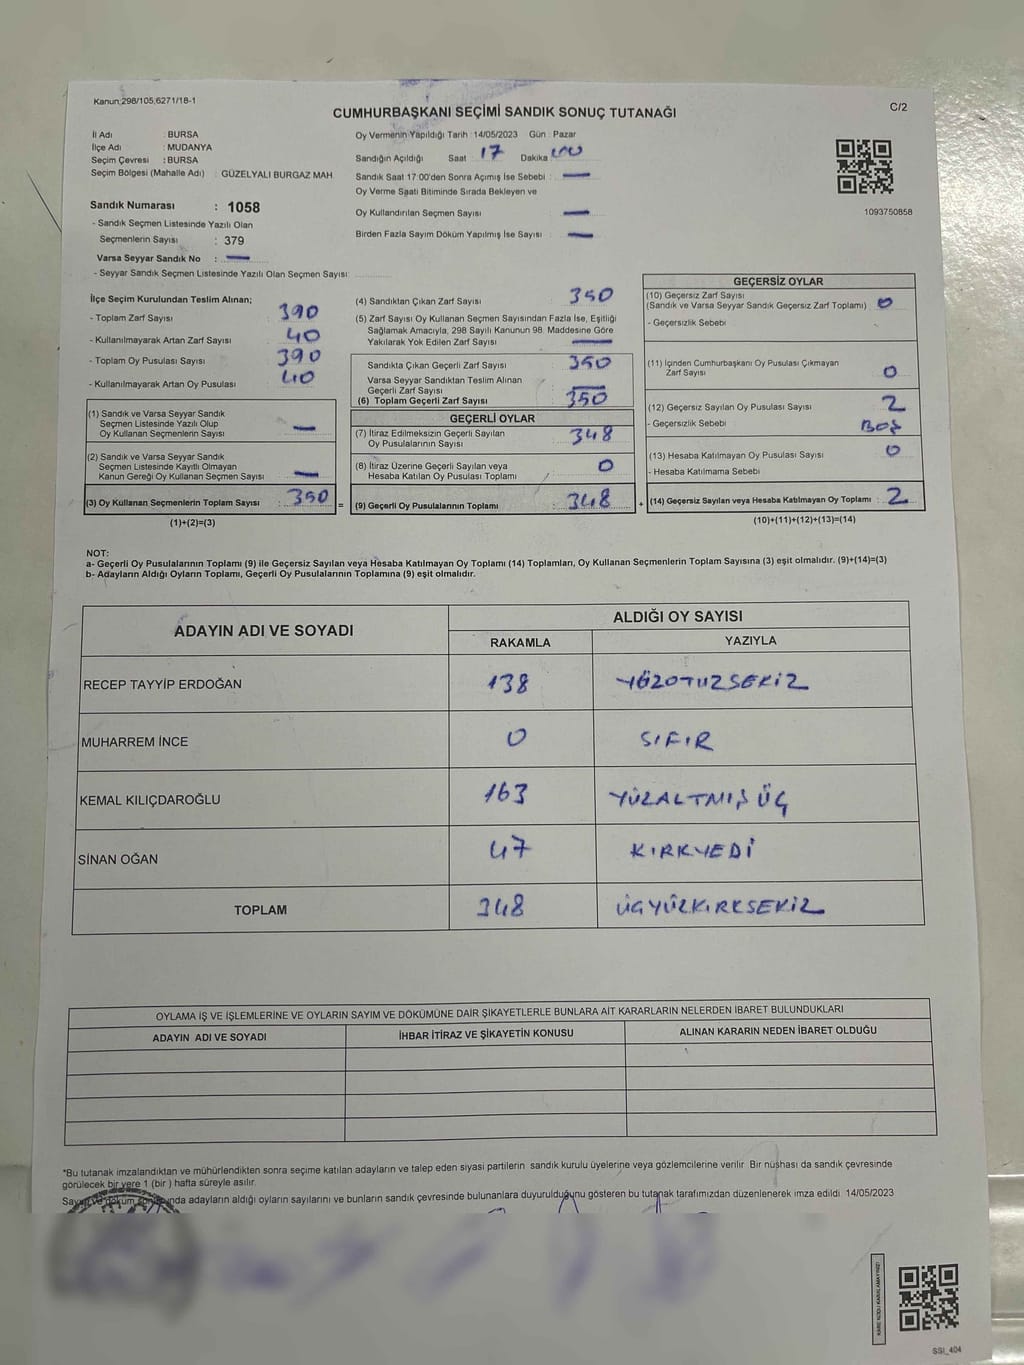 Kanun:298/105,6271/18-1
C/2
CUMHURBAŞKANI SEÇİMİ SANDIK SONUÇ TUTANAĞI
İl Adı : BURSA
İlçe Adı : MUDANYA
Seçim Çevresi : BURSA
Seçim Bölgesi (Mahalle Adı) : GÜZELYALI BURGAZ MAH.
Sandık Numarası : 1058
- Sandık Seçmen Listesinde Yazılı Olan
Seçmenlerin Sayısı : 379
Varsa Seyyar Sandık No : —
- Seyyar Sandık Seçmen Listesinde Yazılı Olan Seçmen Sayısı:
Oy Vermenin Yapıldığı Tarih : 14/05/2023 Gün : Pazar
Sandığın Açıldığı Saat 17 Dakika 00
Sandık Saat 17:00'den Sonra Açımış İse Sebebi : —
Oy Verme Saati Bitiminde Sırada Bekleyen ve
Oy Kullandırılan Seçmen Sayısı —
Birden Fazla Sayım Döküm Yapılmış İse Sayısı : —
1093750858
İlçe Seçim Kurulundan Teslim Alınan;
- Toplam Zarf Sayısı : 390
- Kullanılmayarak Artan Zarf Sayısı : 40
- Toplam Oy Pusulası Sayısı : 390
- Kullanılmayarak Artan Oy Pusulası : 40
(1) Sandık ve Varsa Seyyar Sandık
Seçmen Listesinde Yazılı Olup
Oy Kullanan Seçmenlerin Sayısı : —
(2) Sandık ve Varsa Seyyar Sandık
Seçmen Listesinde Kayıtlı Olmayan
Kanun Gereği Oy Kullanan Seçmen Sayısı : —
(3) Oy Kullanan Seçmenlerin Toplam Sayısı : 350 =
(1)+(2)=(3)
(4) Sandıktan Çıkan Zarf Sayısı : 350
(5) Zarf Sayısı Oy Kullanan Seçmen Sayısından Fazla İse, Eşitliği
Sağlamak Amacıyla, 298 Sayılı Kanunun 98. Maddesine Göre
Yakılarak Yok Edilen Zarf Sayısı : —
Sandıkta Çıkan Geçerli Zarf Sayısı : 350
Varsa Seyyar Sandıktan Teslim Alınan
Geçerli Zarf Sayısı : —
(6) Toplam Geçerli Zarf Sayısı : 350
GEÇERLİ OYLAR
(7) İtiraz Edilmeksizin Geçerli Sayılan
Oy Pusulalarının Sayısı : 348
(8) İtiraz Üzerine Geçerli Sayılan veya
Hesaba Katılan Oy Pusulası Toplamı : 0
(9) Geçerli Oy Pusulalarının Toplamı : 348 +
GEÇERSİZ OYLAR
(10) Geçersiz Zarf Sayısı
(Sandık ve Varsa Seyyar Sandık Geçersiz Zarf Toplamı) : 0
- Geçersizlik Sebebi :
(11) İçinden Cumhurbaşkanı Oy Pusulası Çıkmayan
Zarf Sayısı : 0
(12) Geçersiz Sayılan Oy Pusulası Sayısı : 2
- Geçersizlik Sebebi : BOŞ
(13) Hesaba Katılmayan Oy Pusulası Sayısı : 0
- Hesaba Katılmama Sebebi :
(14) Geçersiz Sayılan veya Hesaba Katılmayan Oy Toplamı : 2
(10)+(11)+(12)+(13)=(14)
NOT:
a- Geçerli Oy Pusulalarının Toplamı (9) ile Geçersiz Sayılan veya Hesaba Katılmayan Oy Toplamı (14) Toplamları, Oy Kullanan Seçmenlerin Toplam Sayısına (3) eşit olmalıdır. (9)+(14)=(3)
b- Adayların Aldığı Oyların Toplamı, Geçerli Oy Pusulalarının Toplamına (9) eşit olmalıdır.
ADAYIN ADI VE SOYADI
ALDIĞI OY SAYISI
RAKAMLA YAZIYLA
RECEP TAYYİP ERDOĞAN 138 YÜZOTUZSEKİZ
MUHARREM İNCE 0 SIFIR
KEMAL KILIÇDAROĞLU 163 YÜZALTMIŞ ÜÇ
SİNAN OĞAN 47 KIRKYEDİ
TOPLAM 348 ÜÇYÜZKIRKSEKİZ
OYLAMA İŞ VE İŞLEMLERİNE VE OYLARIN SAYIM VE DÖKÜMÜNE DAİR ŞİKAYETLERLE BUNLARA AİT KARARLARIN NELERDEN İBARET BULUNDUKLARI
ADAYIN ADI VE SOYADI İHBAR İTİRAZ VE ŞİKAYETİN KONUSU ALINAN KARARIN NEDEN İBARET OLDUĞU
*Bu tutanak imzalandıktan ve mühürlendikten sonra seçime katılan adayların ve talep eden siyasi partilerin sandık kurulu üyelerine veya gözlemcilerine verilir Bir nüshası da sandık çevresinde
görülecek bir yere 1 (bir ) hafta süreyle asılır.
Sayım ve döküm sonucunda adayların aldığı oyların sayılarını ve bunların sandık çevresinde bulunanlara duyurulduğunu gösteren bu tutanak tarafımızdan düzenlenerek imza edildi 14/05/2023
KARE KODU KARALAMAYINIZ!
SSI_404